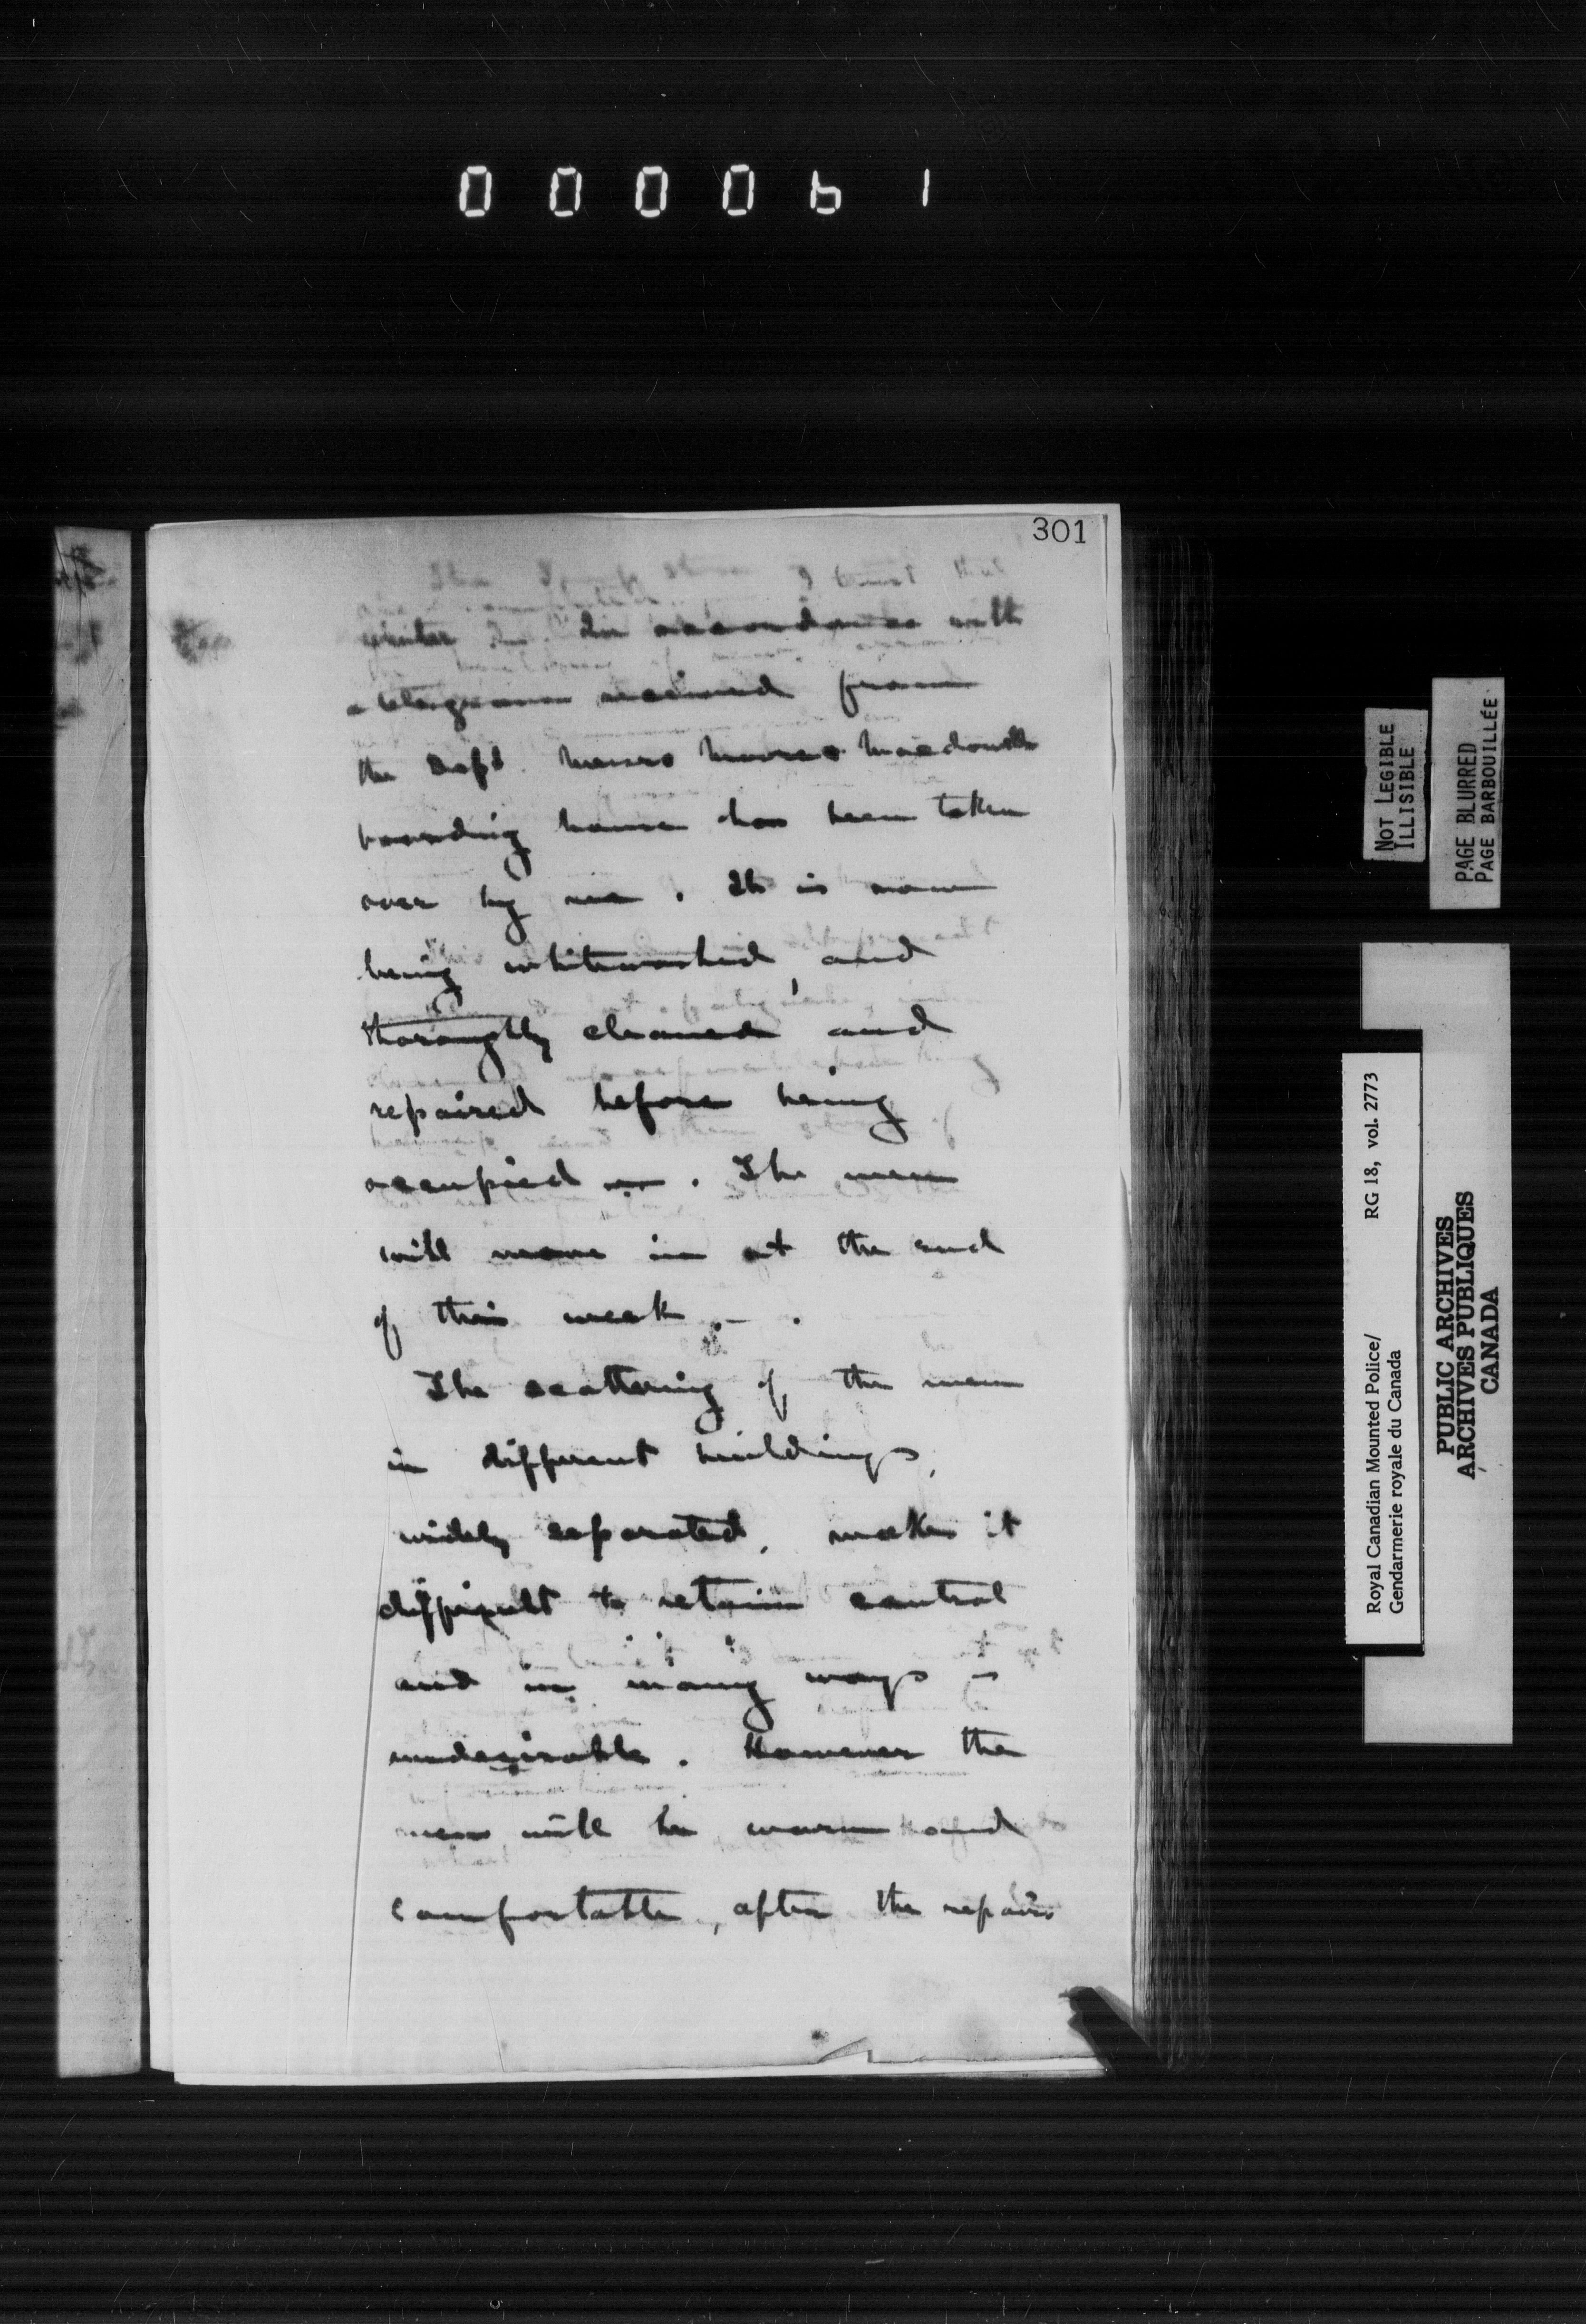 000061
301
winter In accordance with
a telegram received from
the Dept. Messrs Moore & Macdowells
boarding house has been taken
over by me. It is now
being whitewashed, and
thoroughly cleaned and
repaired before being
occupied. The men
will move in at the end
of this week.
The scattering of the men
in different buildings,
widely separated, makes it
difficult to retain control
and in many ways
undesirable. However the
men will be warm and
comfortable, after the repairs
NOT LEGIBLE
ILLISIBLE
PAGE BLURRED
PAGE BARBOUILLÉE
Royal Canadian Mounted Police/ RG 18, vol. 2773
Gendarmerie royale du Canada
PUBLIC ARCHIVES
ARCHIVES PUBLIQUES
CANADA